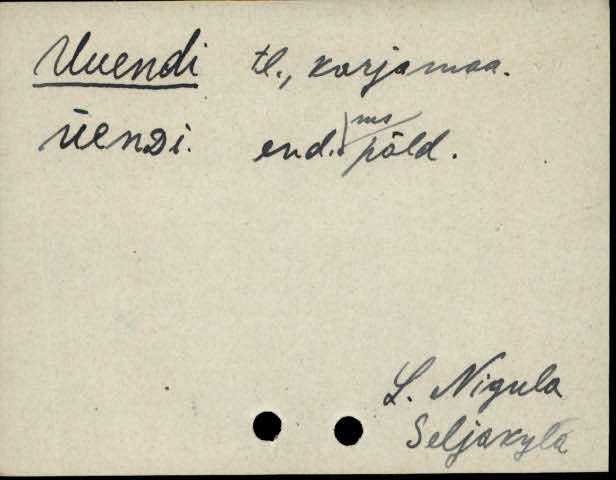 Uuendi tl., karjamaa.
üenDi. end. ms põld.
L. Nigula
Seljaküla